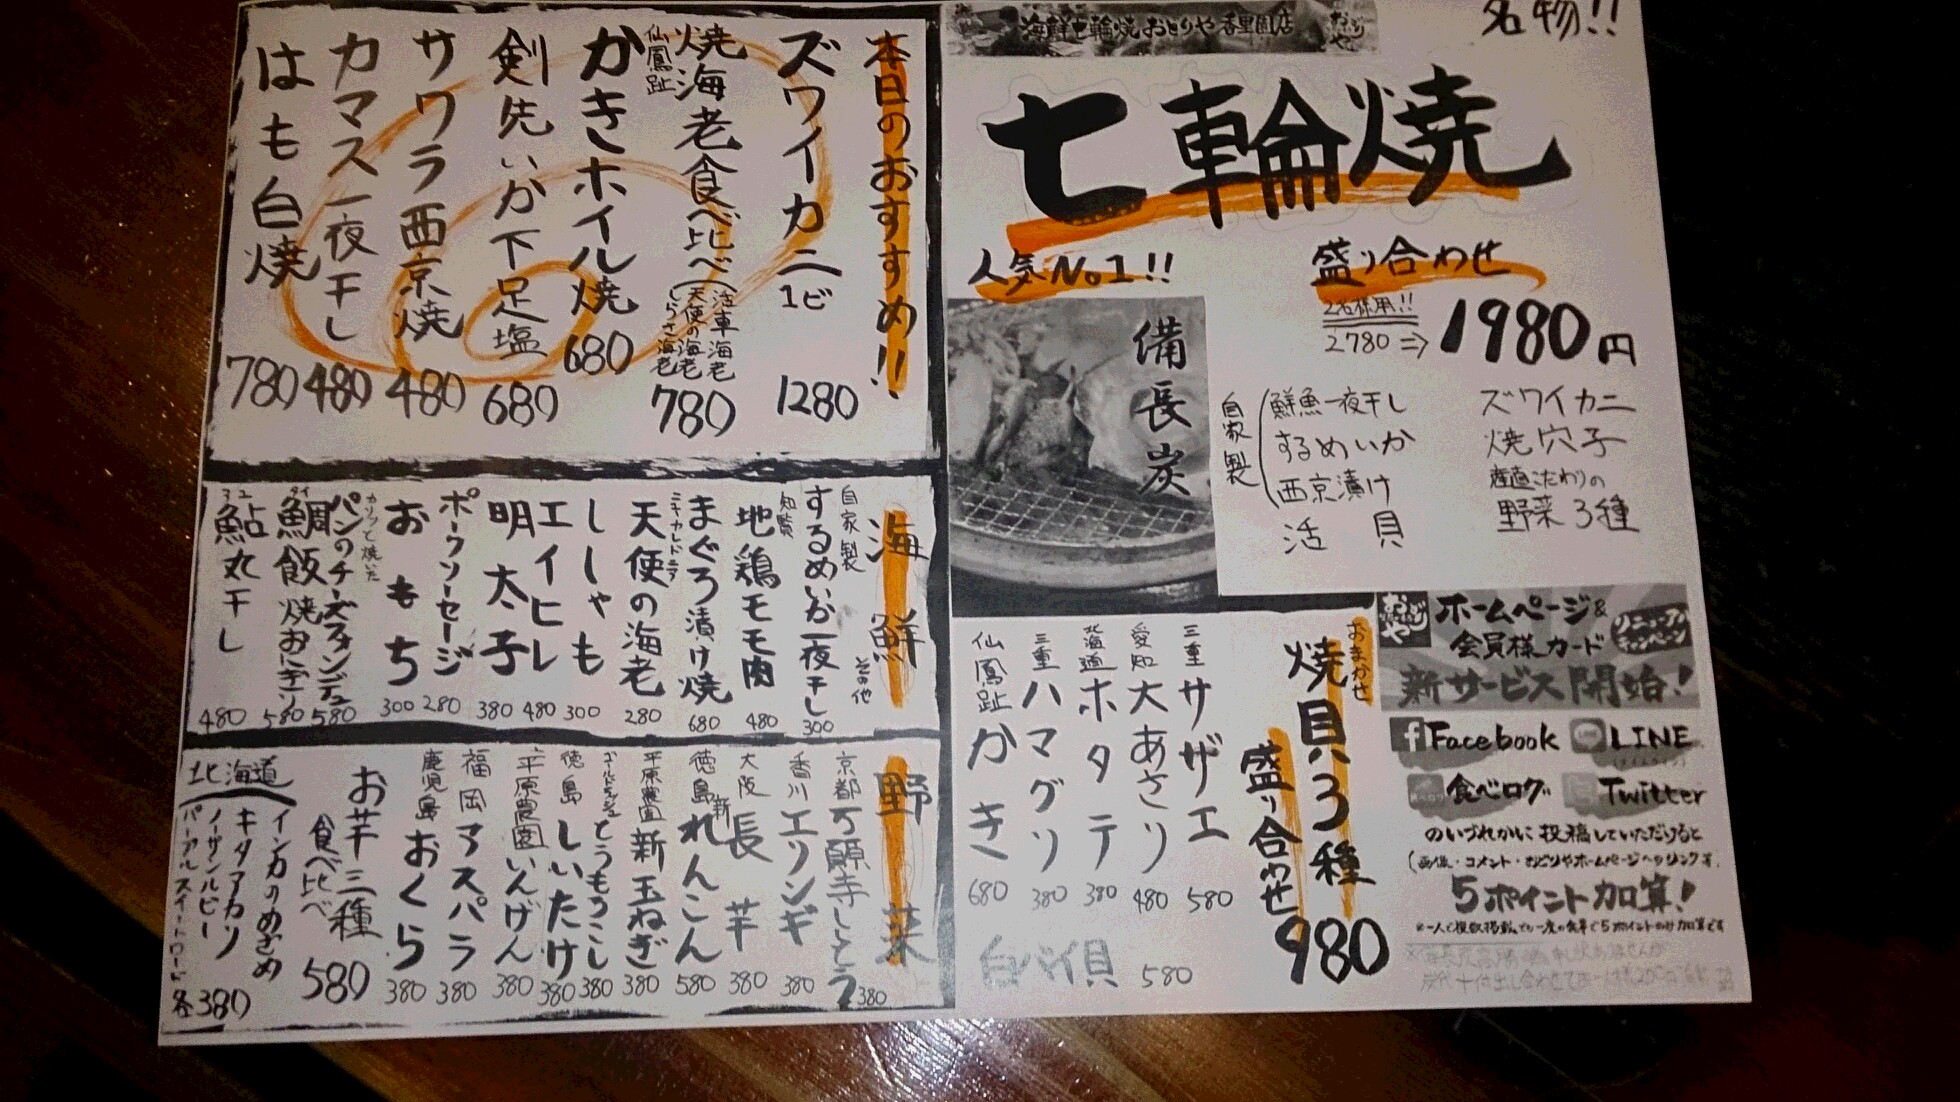 海鮮七輪焼おどりや香里園店
名物!!
七輪焼
人気No1!!
盛り合わせ
2名様用!!
2780⇒1980円
備長炭
ズワイカニ
焼穴子
産直こだわりの
野菜3種
自家製
鮮魚一夜干し
するめいか
西京漬け
活貝
おまかせ
焼貝3種
盛り合わせ
980
三重サザエ 580
愛知大あさり 480
北海道ホタテ 380
三重ハマグリ 380
仙鳳趾かき 680
白バイ貝 580
ホームページ&
会員様カード
新サービス開始!
Facebook
LINE
食べログ
Twitter
のいづれかに投稿していただけると
(画像・コメント・おどりやホームページへのリンク等)
5ポイント加算!
本日のおすすめ!!
ズワイカニ1ビ 1280
焼海老食べ比べ(活車海老 天使の海老 しらさ海老 780
仙鳳趾
かきホイル焼 680
剣先いか下足塩 680
サワラ西京焼 480
カマス一夜干し 480
はも白焼 780
海鮮
その他
自家製
するめいか一夜干し 300
知覧
地鶏モモ肉 480
まぐろ漬け焼 680
ニューカレドニア
天使の海老 280
ししゃも 300
エイヒレ 480
明太子 380
ポークソーセージ 280
おもち 300
カリッと焼いた
パンのチーズフォンデュ 580
鯛飯焼おにぎり 580
鮎丸干し 480
野菜
京都万願寺しとう 380
香川エリンギ 380
大阪長芋 380
徳島新れんこん 580
平原農園新玉ねぎ 380
ゴールドラッシュとうもろこし 380
徳島しいたけ 380
平原農園いんげん 380
福岡アスパラ 380
鹿児島おくら 380
お芋三種
食べ比べ 580
北海道
インカのめざめ
キタアカリ
ノーザンルビー
パープルスイートロード
各380